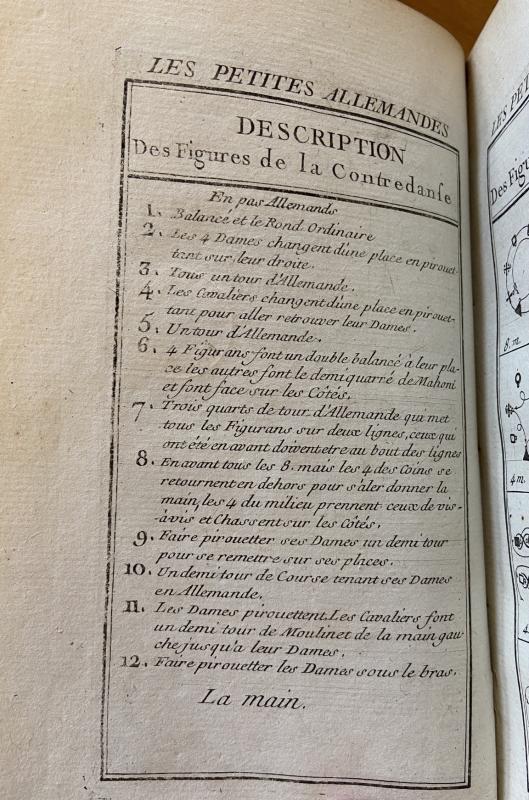 LES PETITES ALLEMANDES
DESCRIPTION
Des Figures de la Contredanse
En pas Allemands
1. Balancé et le Rond Ordinaire
2. Les 4 Dames changent d'une place en pirouet-
tant sur leur droite.
3. Tous un tour d'Allemande.
4. Les Cavaliers changent d'une place en pirouet-
tant pour aller retrouver leur Dames.
5. Un tour d'Allemande.
6. 4 Figurans font un double balancé à leur pla-
ce les autres font le demi quarré de Mahoni
et font face sur les Côtés,
7. Trois quarts de tour d'Allemande qui met
tous les Figurans sur deux lignes, ceux qui
ont été en avant doivent etre au bout des lignes
8. En avant tous les 8. mais les 4 des Coins se
retournent en dehors pour s'aler donner la
main, les 4 du milieu prennent ceux de vis-
àvis et Chassent sur les Côtés,
9. Faire pirouetter ses Dames un demi tour
pour se remettre sur ses places.
10. Un demi tour de Course tenant ses Dames
en Allemande,
11. Les Dames pirouettent, Les Cavaliers font
un demi tour de Moulinet de la main gau-
che jusqu'a leur Dames,
12. Faire pirouetter les Dames sous le bras.
La main.
LES PET
Des Figu
8. m.
4 m.